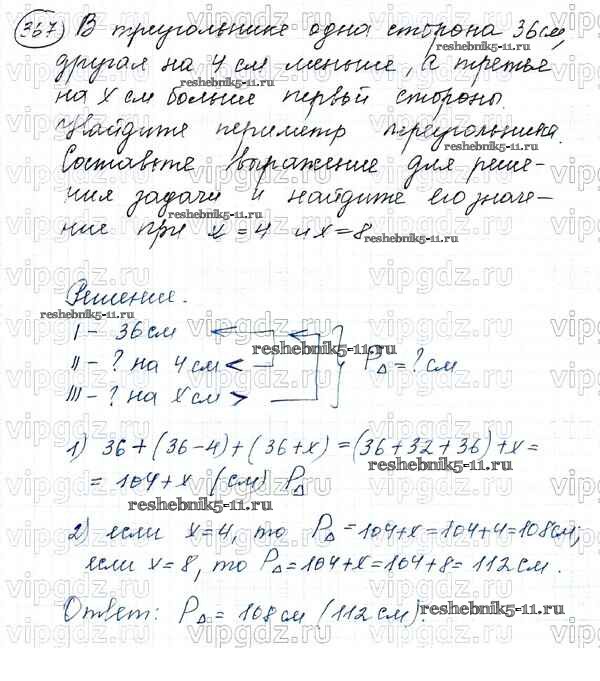 367) В треугольнике одна сторона 36см,
другая на 4 см меньше, а третья
на x см больше первой стороны.
Найдите периметр треугольника.
Составьте выражение для реше-
ния задачи и найдите его значе-
ние при x=4 и x=8
Решение.
I – 36см
II – ? на 4см <
III – ? на x см >
P△ = ? см
1) 36+(36-4)+(36+x)=(36+32+36)+x=
= 104+x (см) P△
2) если x=4, то P△=104+x=104+4=108см;
если x=8, то P△=104+x=104+8=112см.
Ответ: P△= 108см (112см).
reshebnik5-11.ru
vipgdz.ru